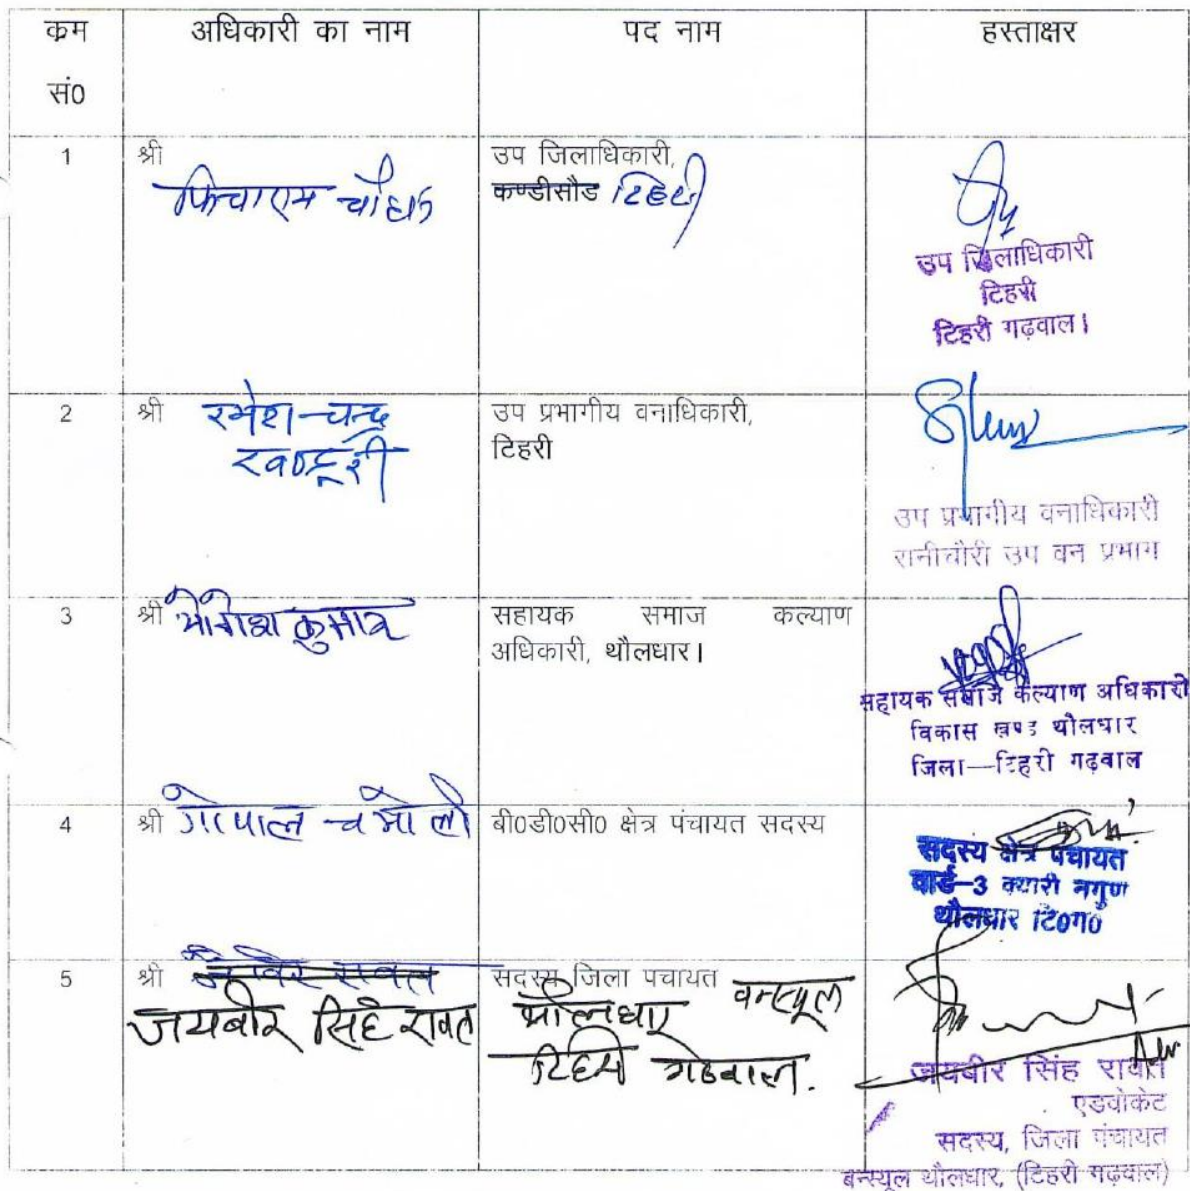 क्रम
सं0
अधिकारी का नाम
पद नाम
हस्ताक्षर
1
श्री
चौहान
उप जिलाधिकारी,
कण्डीसौड टिहरी
उप जिलाधिकारी
टिहरी
टिहरी गढ़वाल।
2
श्री रमेश चन्द्र
खण्डूरी
उप प्रभागीय वनाधिकारी,
टिहरी
उप प्रभागीय वनाधिकारी
रानीचौरी उप वन प्रभाग
3
श्री योगेश कुमार
सहायक समाज कल्याण
अधिकारी, थौलधार।
सहायक समाज कल्याण अधिकारी
विकास खण्ड थौलधार
जिला—टिहरी गढ़वाल
4
श्री गोपाल चमोली
बी0डी0सी0 क्षेत्र पंचायत सदस्य
सदस्य क्षेत्र पंचायत
वार्ड-3 क्यारी नगुण
थौलधार टि0ग0
5
श्री
जयबीर सिंह रावत
सदस्य जिला पचायत वन्स्यूल
थौलधार
टिहरी गढवाल.
जयबीर सिंह रावत
एडवोकेट
सदस्य, जिला पंचायत
बन्स्यूल थौलधार, (टिहरी गढ़वाल)